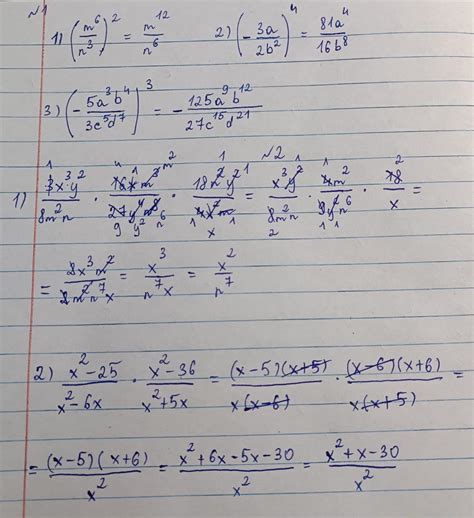 №1
1) (m⁶/n³)² = m¹²/n⁶ 2) (-3a/2b²)⁴ = 81a⁴/16b⁸
3) (-5a³b⁴/3c⁵d⁷)³ = -125a⁹b¹²/27c¹⁵d²¹
№2
1) 3x³y²/8m²n · 16xm³/27y⁴n⁸ · 18n²y²/4x²m = x³y²/8m²n · 4m²/9y²n⁶ · 18/x =
= 8x³m²/8m²n⁷x = x³/n⁷x = x²/n⁷
2) x²-25/x²-6x · x²-36/x²+5x = (x-5)(x+5)/x(x-6) · (x-6)(x+6)/x(x+5) =
= (x-5)(x+6)/x² = x²+6x-5x-30/x² = x²+x-30/x²